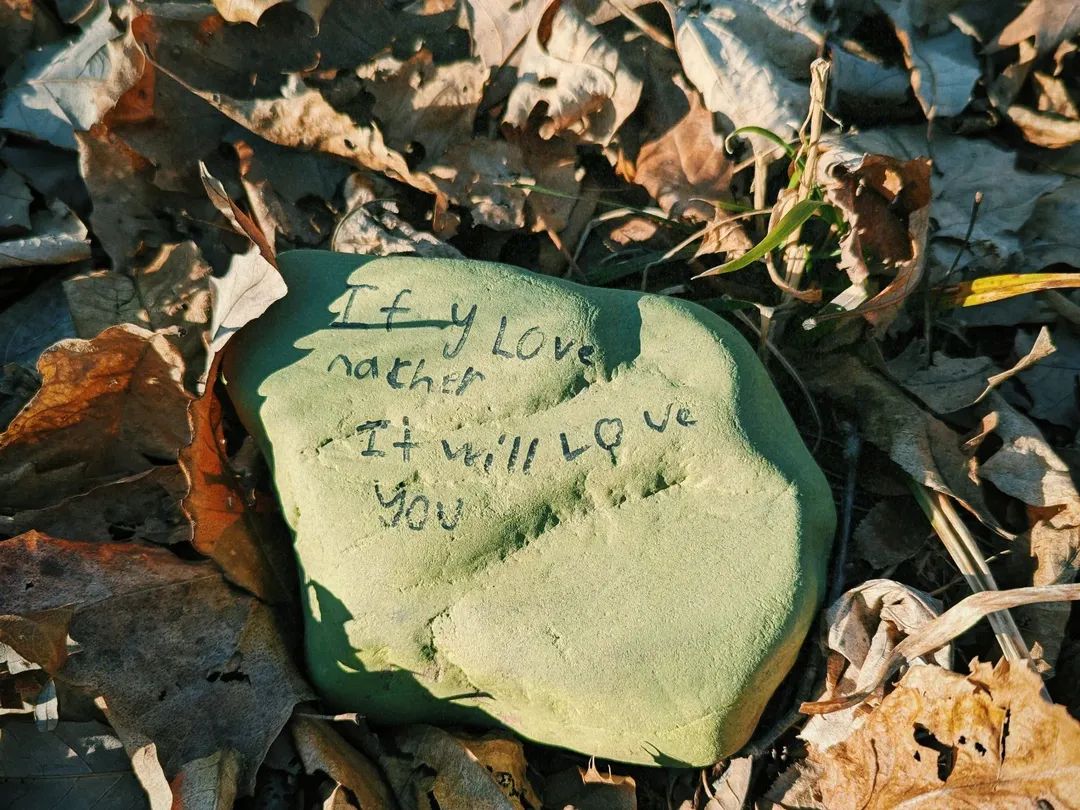 If y Love
nather
It will Love
you